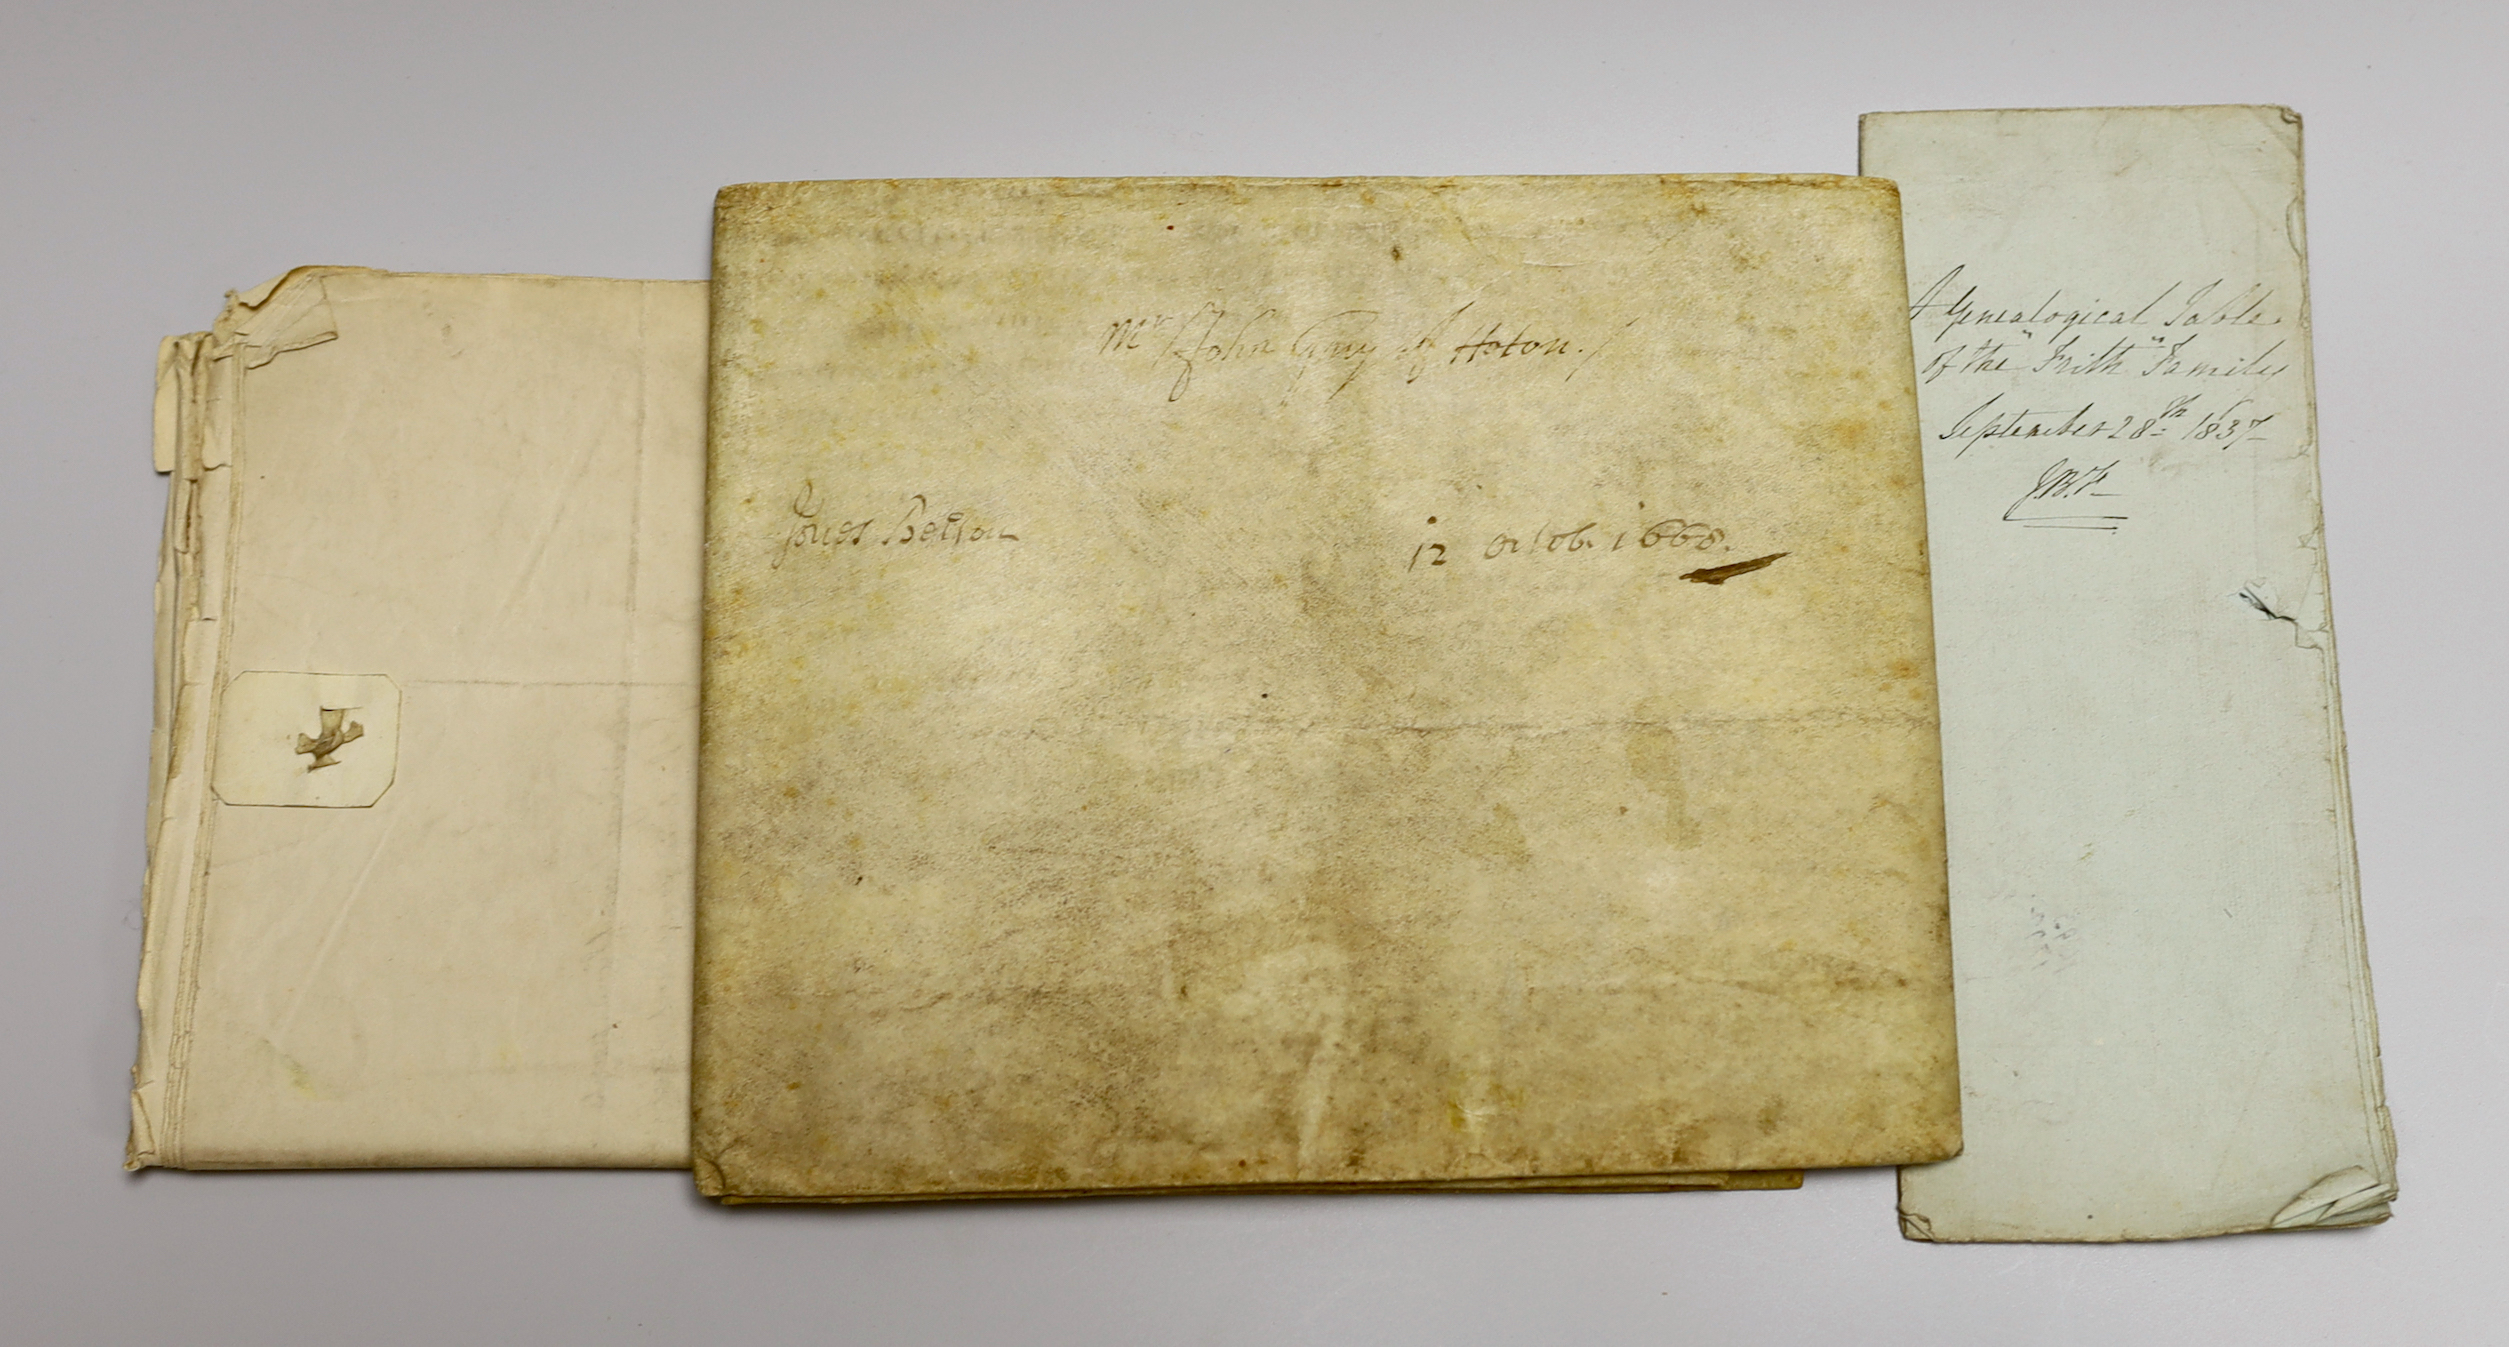 Mr John Gray of Hoton./
Jones Belton
12 octob. 1668.
A Genealogical Table
of the "Frith" Family
September 28th 1837
J.B.F.